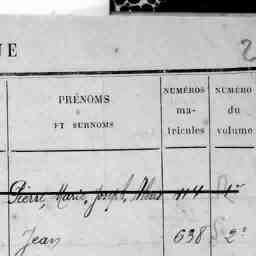 UE 2
PRÉNOMS
ET SURNOMS
NUMÉROS
ma-
tricules
NUMÉRO
du
volume
Pierre, Marie, Joseph,
Jean 638 2°